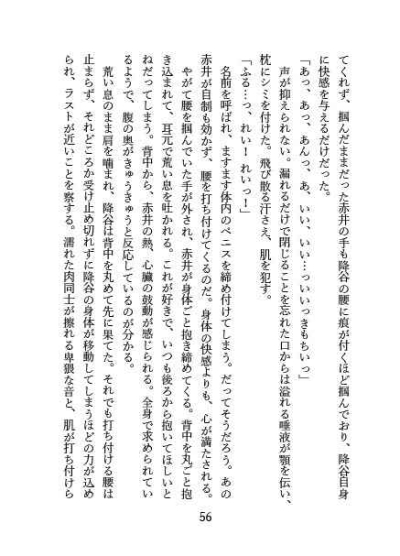 てくれず、掴んだままだった赤井の手も降谷の腰に痕が付くほど掴んでおり、降谷自身
に快感を与えるだけだった。
「あっ、あっ、あんっ、あ、いい、いい…っいいっきもちいっ」
声が抑えられない。漏れるだけで閉じることを忘れた口からは溢れる唾液が顎を伝い、
枕にシミを付けた。飛び散る汗さえ、肌を犯す。
「ふる…っ、れい！れいっ！」
名前を呼ばれ、ますます体内のペニスを締め付けてしまう。だってそうだろう。あの
赤井が自制も効かず、腰を打ち付けてくるのだ。身体の快感よりも、心が満たされる。
やがて腰を掴んでいた手が外され、赤井が身体ごと抱き締めてくる。背中を丸ごと抱
き込まれて、耳元で荒い息を吐かれる。これが好きで、いつも後ろから抱いてほしいと
ねだってしまう。背中から、赤井の熱、心臓の鼓動が感じられる。全身で求められてい
るようで、腹の奥がきゅうきゅうと反応しているのが分かる。
荒い息のまま肩を噛まれ、降谷は背中を丸めて先に果てた。それでも打ち付ける腰は
止まらず、それどころか受け止め切れずに降谷の身体が移動してしまうほどの力が込め
られ、ラストが近いことを察する。濡れた肉同士が擦れる卑猥な音と、肌が打ち付けら
56